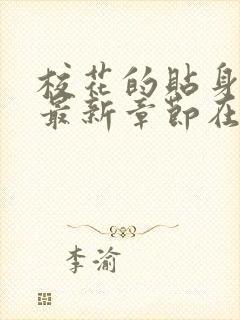 校花的貼身
最新章節在
李渝